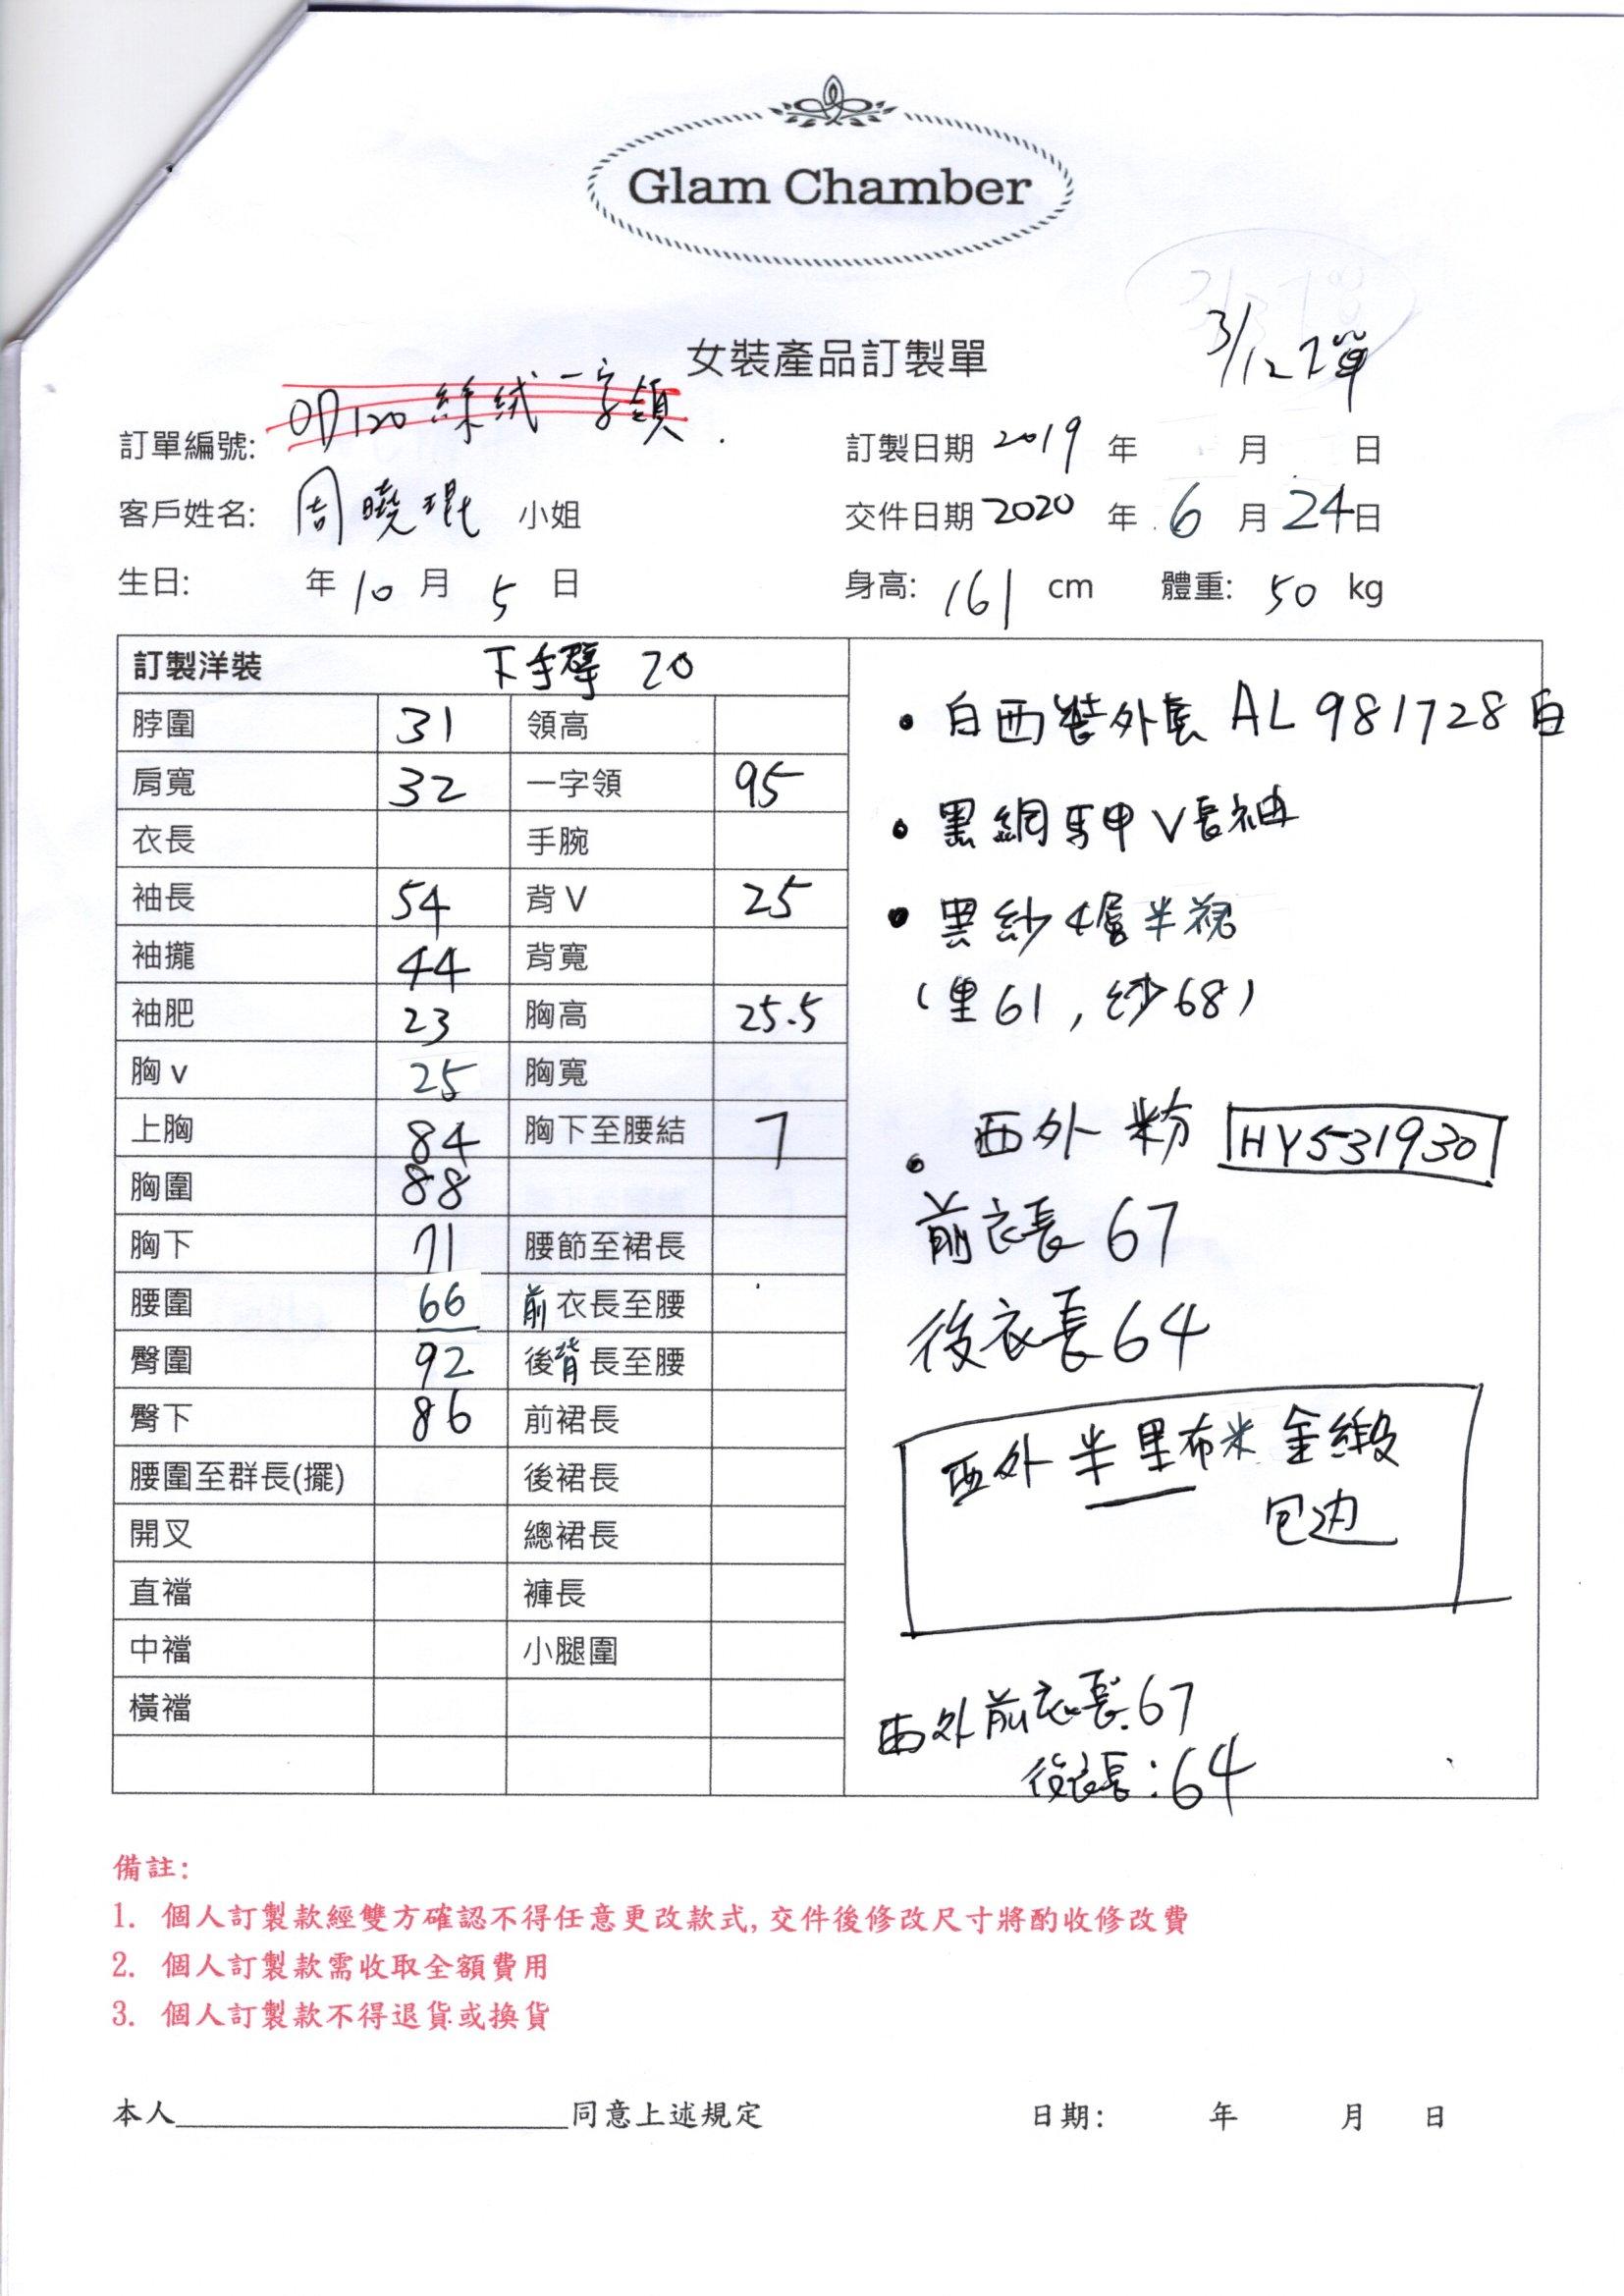 Glam Chamber
女裝產品訂製單
3/12 下單
訂單編號: 07120 絲絨一字領
訂製日期 2019 年 月 日
客戶姓名: 周曉琨 小姐
交件日期 2020 年 6 月 24 日
生日: 年 10 月 5 日
身高: 161 cm 體重: 50 kg
訂製洋裝 下手臂 20
脖圍 31 領高
肩寬 32 一字領 95
衣長 手腕
袖長 54 背V 25
袖攏 44 背寬
袖肥 23 胸高 25.5
胸v 25 胸寬
上胸 84 胸下至腰結 7
胸圍 88
胸下 71 腰節至裙長
腰圍 66 前衣長至腰
臀圍 92 後背長至腰
臀下 86 前裙長
腰圍至群長(擺) 後裙長
開叉 總裙長
直襠 褲長
中襠 小腿圍
橫襠
• 白西裝外套 AL981728白
• 黑網馬甲V長袖
• 黑紗4層半裙
(里61, 紗68)
• 西外 粉 HY531930
前衣長 67
後衣長 64
西外 半里布米 金緞
包边
西外前衣長.67
後衣長:64
備註:
1. 個人訂製款經雙方確認不得任意更改款式,交件後修改尺寸將酌收修改費
2. 個人訂製款需收取全額費用
3. 個人訂製款不得退貨或換貨
本人 同意上述規定 日期: 年 月 日